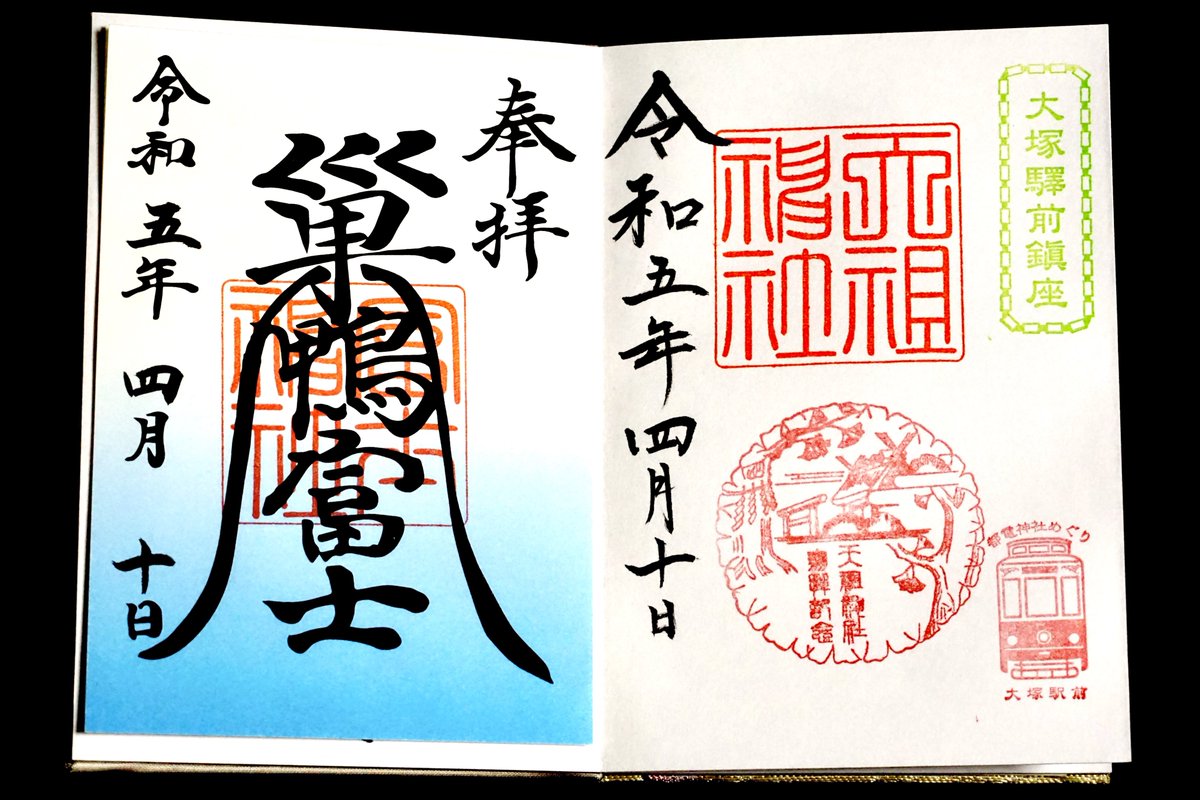 大塚驛前鎮座
天祖神社
天祖神社
参拝記念
都電神社めぐり
大塚駅前
令和五年四月十日
奉拝
巣鴨富士
富士神社
令和五年四月十日